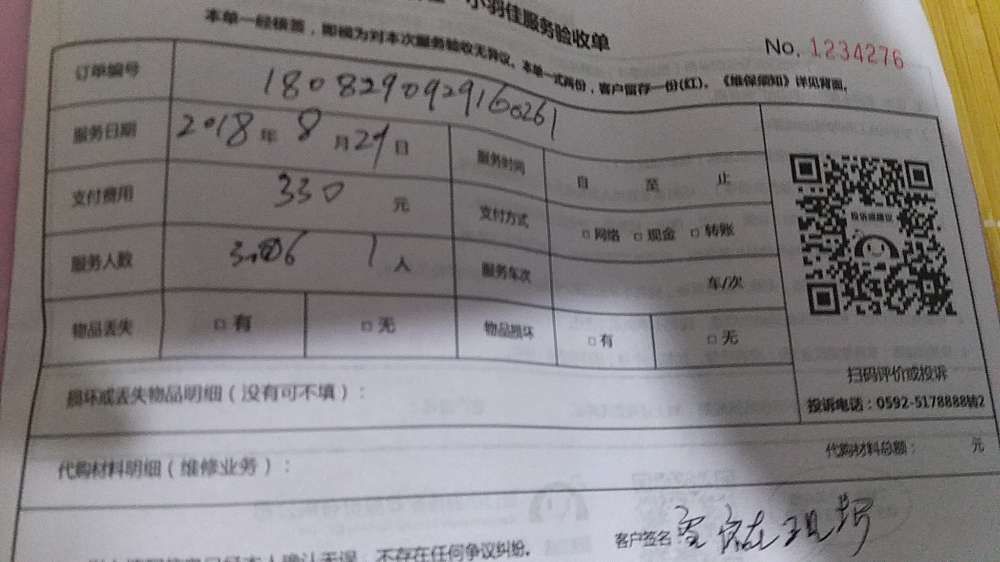 小羽佳服务验收单
No. 1234276
本单一经核签，即视为对本次服务验收无异议。本单一式两份，客户留存一份(红)。《维保须知》详见背面。
订单编号 1808290929160261
服务日期 2018年8月29日 服务时间 自 至 止
支付费用 330 元 支付方式 □网络 □现金 □转账
服务人数 1人 服务车次 车/次
物品丢失 □有 □无 物品损坏 □有 □无
投诉或建议
扫码评价或投诉
投诉电话：0592-5178888转2
损坏或丢失物品明细（没有可不填）：
代购材料明细（维修业务）：
代购材料总额： 元
确认无误，不存在任何争议纠纷。
客户签名